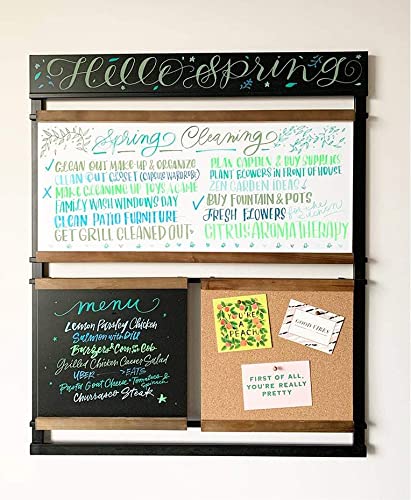 Hello Spring
Spring Cleaning
✓ CLEAN OUT MAKE-UP & ORGANIZE
CLEAN OUT CLOSET (CAPSULE WARDROBE)
✗ MAKE CLEANING UP TOYS A GAME
FAMILY WASH WINDOWS DAY
CLEAN PATIO FURNITURE
GET GRILL CLEANED OUT
PLAN GARDEN & BUY SUPPLIES
PLANT FLOWERS IN FRONT OF HOUSE
ZEN GARDEN IDEAS
✓ BUY FOUNTAIN & POTS
FRESH FLOWERS for the kitchen
CITRUS AROMATHERAPY
menu
Lemon Parsley Chicken
Salmon with Dill
Burgers & Corn on the Cob
Grilled Chicken Caesar Salad
UBER EATS
Pasta Goat Cheese & Tomatoes & Spinach
Churrasco Steak
YOU'RE
A
PEACH
GOOD VIBES
FIRST OF ALL,
YOU'RE REALLY
PRETTY